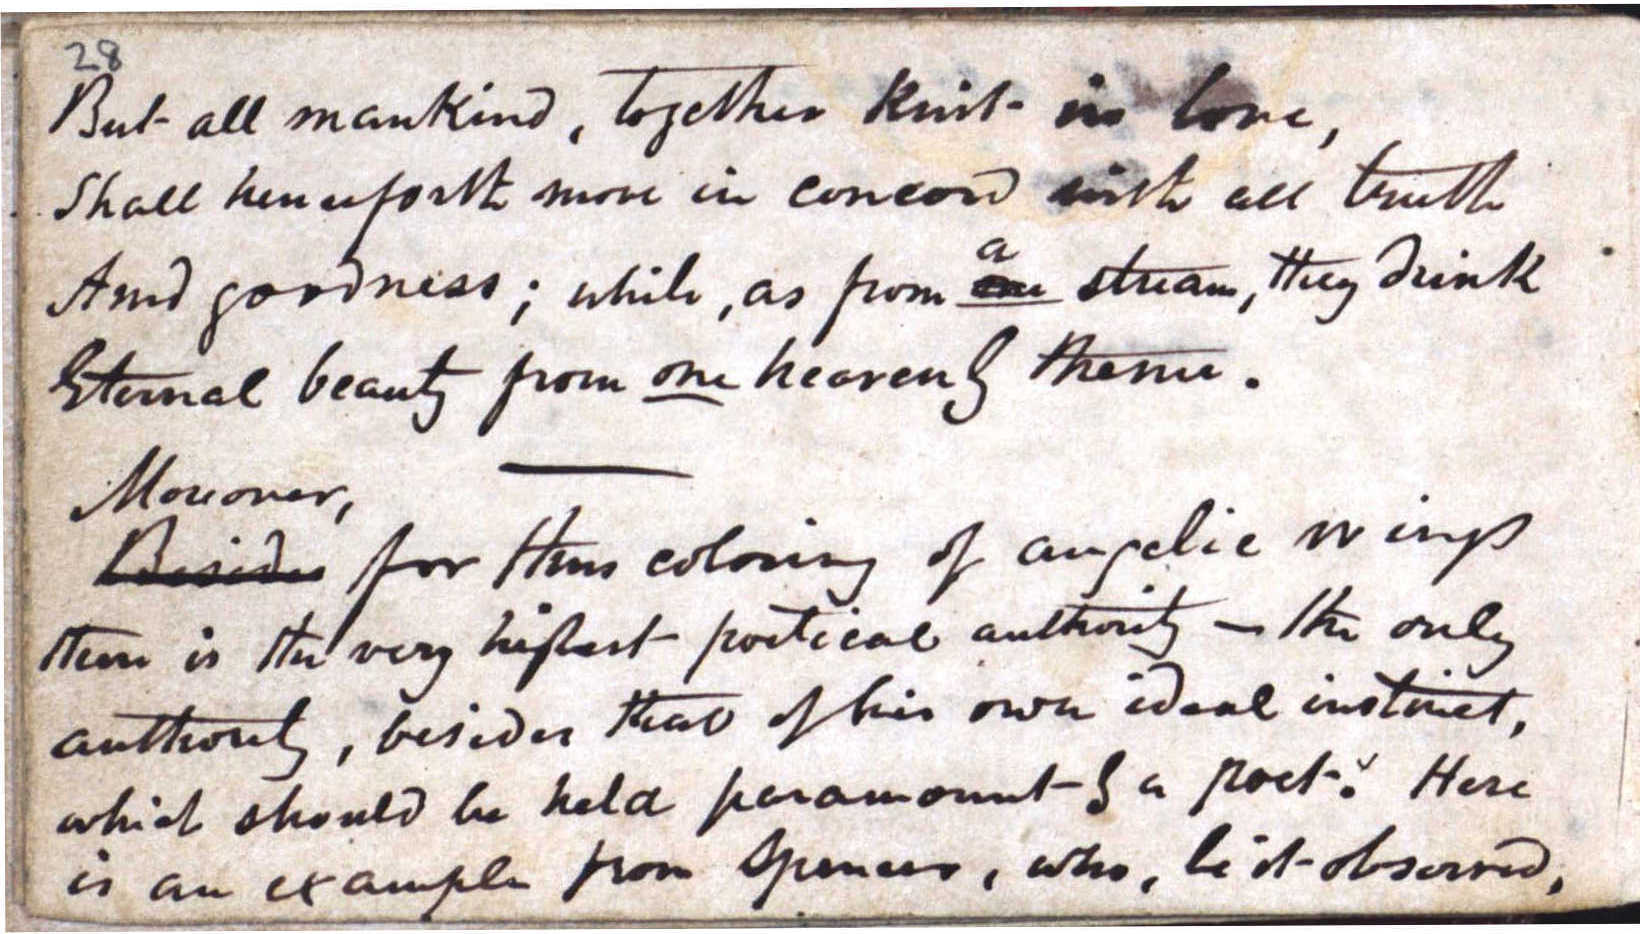 28
But all mankind, together knit in love,
Shall henceforth move in concord with all truth
And goodness; while, as from a one stream, they drink
Eternal beauty from one heavenly theme.
Moreover,
Besides for this coloring of angelic wings
there is the very highest poetical authority — the only
authority, besides that of his own ideal instinct,
which should be held paramount by a poet. Here
is an example from Spenser, who, be it observed,